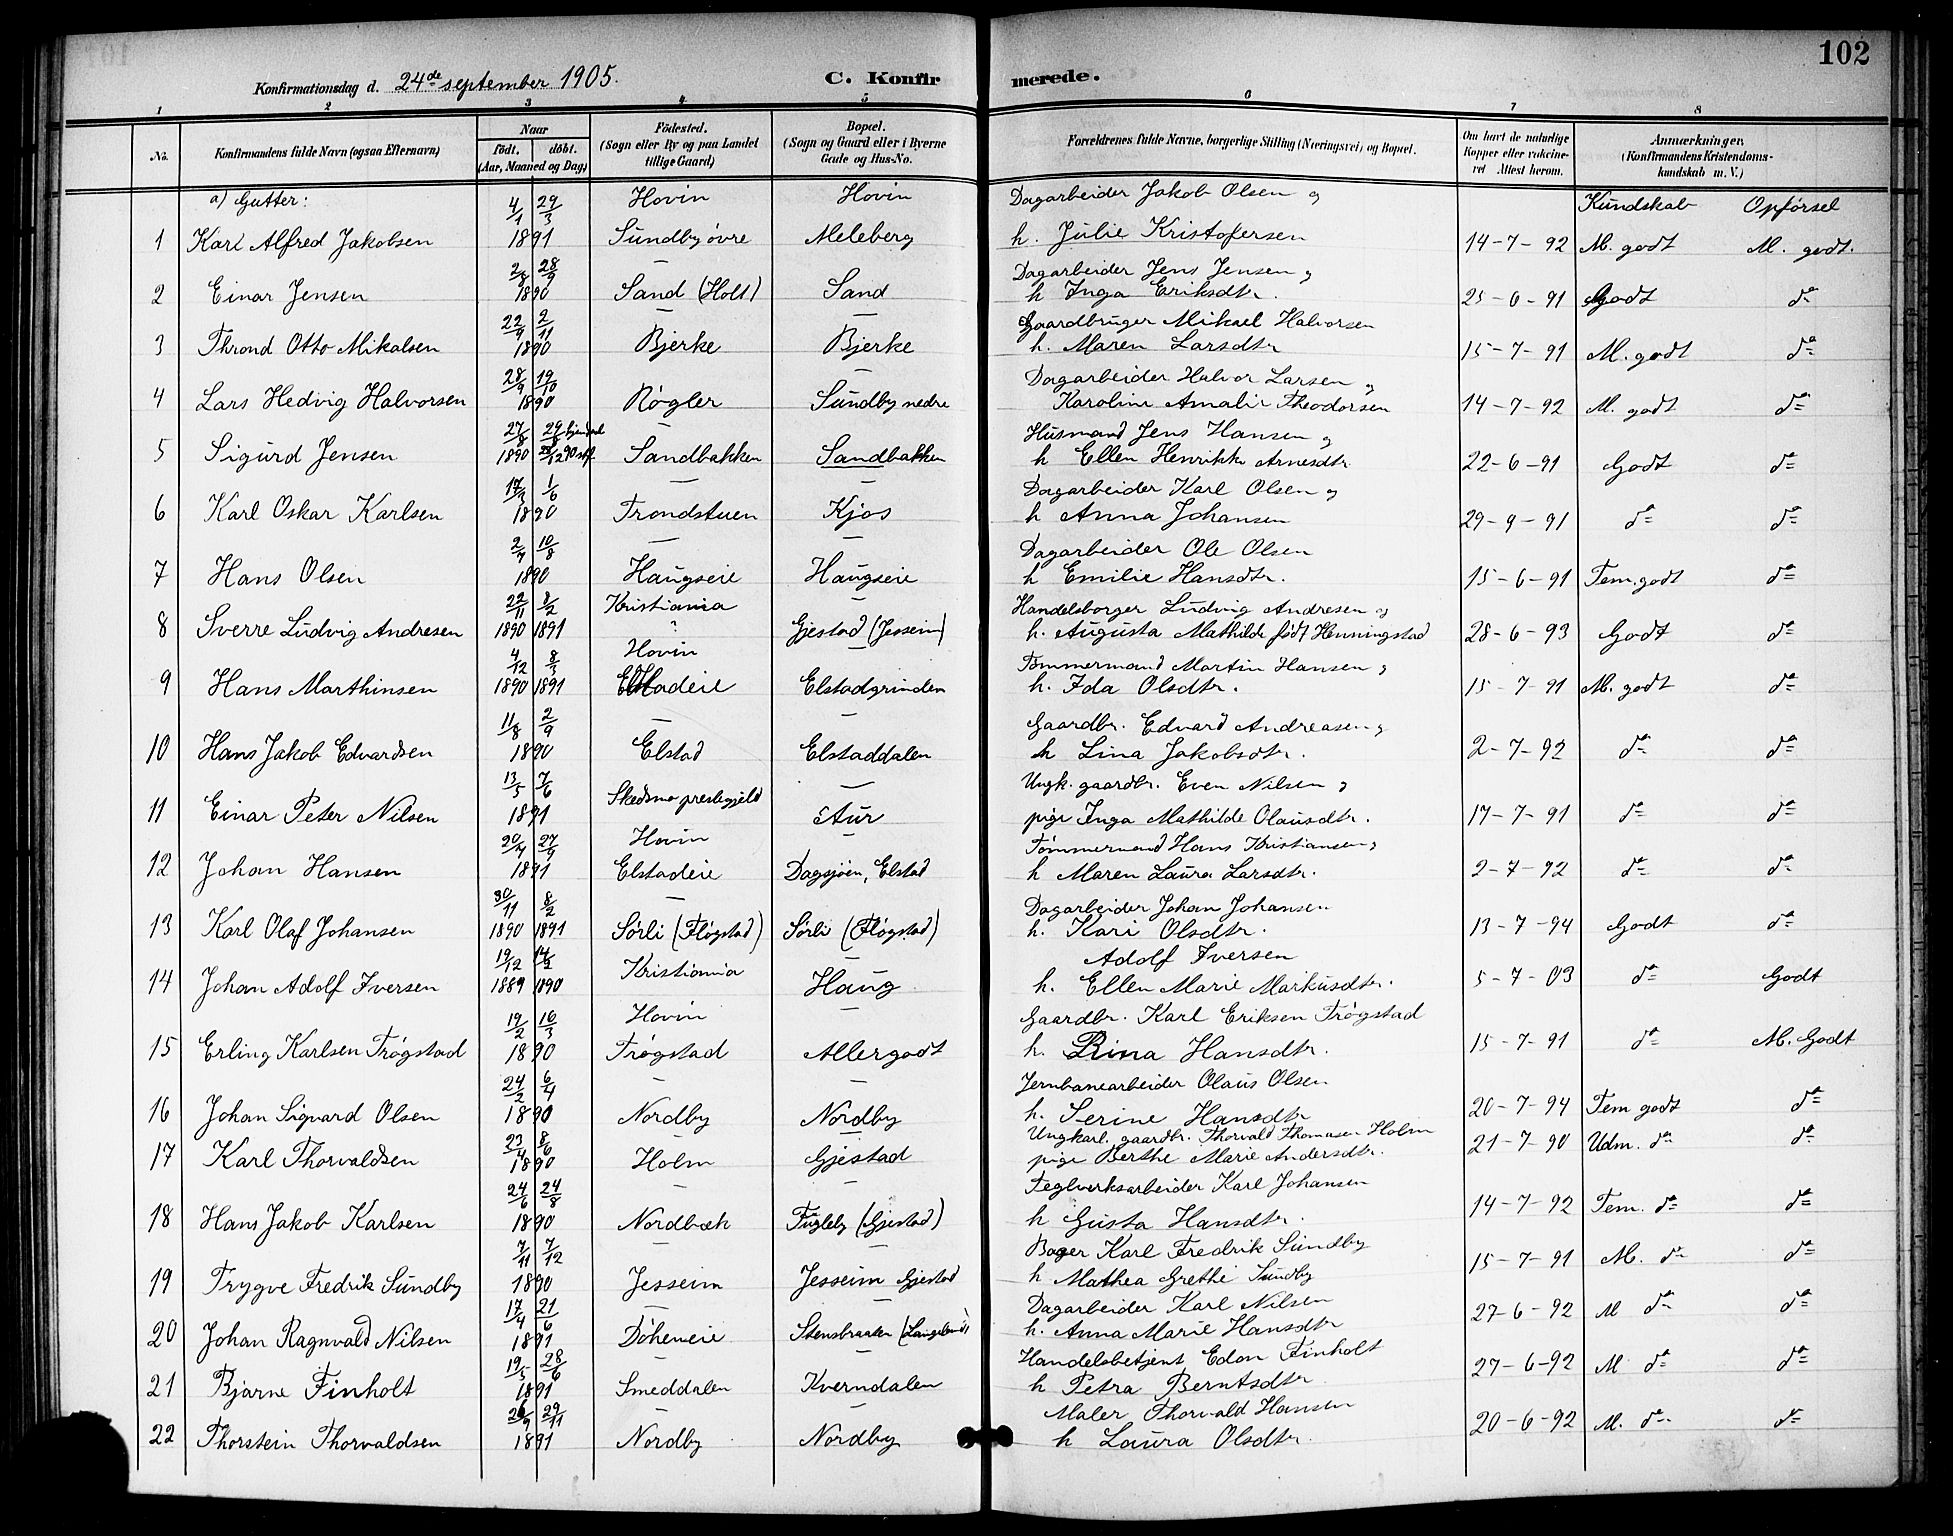 102
Konfirmationsdag d. 24de september 1905. C. Konfirmerede.
1 2 3 4 5 6 7 8
No. Konfirmandens fulde Navn (ogsaa Efternavn) Naar født. døbt. (Aar, Maaned og Dag) Fødested. (Sogn eller By og paa Landet tillige Gaard) Bopæl. (Sogn og Gaard eller i Byerne Gade og Hus-No. Forældrenes fulde Navne, borgerlige Stilling (Næringsvei) og Bopæl. Om havt de naturlige Kopper eller vakcineret Attest herom. Anmærkninger. (Konfirmandens Kristendomskundskab m. V.)
a) Gutter: 4/1 29/3 Hovin Hovin Dagarbeider Jakob Olsen og Kundskab Opførsel
1 Karl Alfred Jakobsen 1891 Sundby øvre Meleberg h. Julie Kristofersen 14-7-92 M. godt M. godt.
2/8 28/9 — — Dagarbeider Jens Jensen og
2 Einar Jensen 1890 Sand (Holt) Sand h Inga Eriksdtr. 25-6-91 Godt do
22/9 2/11 — — Gaardbruger Mikael Halvorsen
3 Thrond Otto Mikalsen 1890 Bjerke Bjerke h. Maren Larsdtr 15-7-91 M. godt do
28/9 19/10 — — Dagarbeider Halvor Larsen og
4 Lars Hedvig Halvorsen 1890 Røgler Sundby nedre Karoline Amalie Theodorsen 14-7-92 M. godt do
27/8 29/8 — — Husmand Jens Hansen og
5 Sigurd Jensen 1890 Sandbakken Sandbakken h Ellen Henrikke Arnesdtr 22-6-91 Godt do
17/3 1/6 — — Dagarbeider Karl Olsen og
6 Karl Oskar Karlsen 1890 Trondstuen Kjos h Anna Johansen 29-9-91 do do
2/7 10/8 — — Dagarbeider Ole Olsen
7 Hans Olsen 1890 Haugseie Haugseie h Emilie Hansdtr. 15-6-91 Tem. godt do
22/11 8/2 Kristiania — Handelsborger Ludvig Andresen og
8 Sverre Ludvig Andresen 1890 1891 Gjestad (Jessein) h. Augusta Mathilde født Henningstad 28-6-93 Godt do
4/12 8/3 Hovin — Tømmermand Martin Hansen og
9 Hans Marthinsen 1890 1891 Elstadeie Elstadgrinden h. Ida Olsdtr. 15-7-91 M. godt do
11/8 2/9 — — Gaardbr. Edvard Andreasen og
10 Hans Jakob Edvardsen 1890 Elstad Elstaddalen h Lina Jakobsdtr. 2-7-92 do do
13/5 7/6 Skedsmo prestegjeld — Ungk. gaardbr. Even Nilsen og
11 Einar Peter Nilsen 1891 Aur pige Inga Mathilde Olausdtr. 17-7-91 do do
20/7 27/9 Hovin Tømmermand Hans Kristiansen og
12 Johan Hansen 1891 Elstadeie Dagsjøen, Elstad h Maren Laura Larsdtr. 2-7-92 do do
30/11 8/2 — — Dagarbeider Johan Johansen
13 Karl Olaf Johansen 1890 1891 Sørli (Fløgstad) Sørli (Fløgstad) h. Kari Olsdtr. 13-7-94 Godt do
19/12 14/2 Kristiania — Adolf Iversen
14 Johan Adolf Iversen 1889 1890 Haug h. Ellen Marie Markusdtr. 5-7-03 do Godt
19/2 16/3 Hovin — Gaardbr. Karl Eriksen Trøgstad
15 Erling Karlsen Trøgstad 1890 Trøgstad Allergodt h. Rina Hansdtr. 15-7-91 do M. Godt
24/2 6/4 — — Jernbanearbeider Olaus Olsen
16 Johan Sigvard Olsen 1890 Nordby Nordby h. Serine Hansdtr 20-7-94 Tem godt do
23/4 8/6 — — Ungkarl. gaardbr. Thorvald Thomasen Holm
17 Karl Thorvaldsen 1890 Holm Gjestad pige Berthe Marie Andersdtr. 21-7-90 Udm. do do
24/6 24/8 — — Teglverksarbeider Karl Johansen
18 Hans Jakob Karlsen 1890 Nordbæk Fugleby (Gjestad) h Gusta Hansdtr. 14-7-92 Tem. do do
7/11 7/12 — — Bager Karl Fredrik Sundby
19 Trygve Fredrik Sundby 1890 Jesseim Jesseim Gjestad h Mathea Grethe Sundby 15-7-91 M. do do
17/4 21/6 — — Dagarbeider Karl Nilsen
20 Johan Ragnvald Nilsen 1891 Døheneie Stensbraaten h. Anna Marie Hansdtr 27-6-92 M do do
19/5 28/6 — Handelsbetjent Edon Finholt
21 Bjarne Finholt 1891 Smeddalen Kverndalen h Petra Berntsdtr. 27-6-92 M do do
26/9 29/11 — — Maler Thorvald Hansen
22 Thorstein Thorvaldsen 1891 Nordby Nordby h Laura Olsdtr. 20-6-92 M. do do